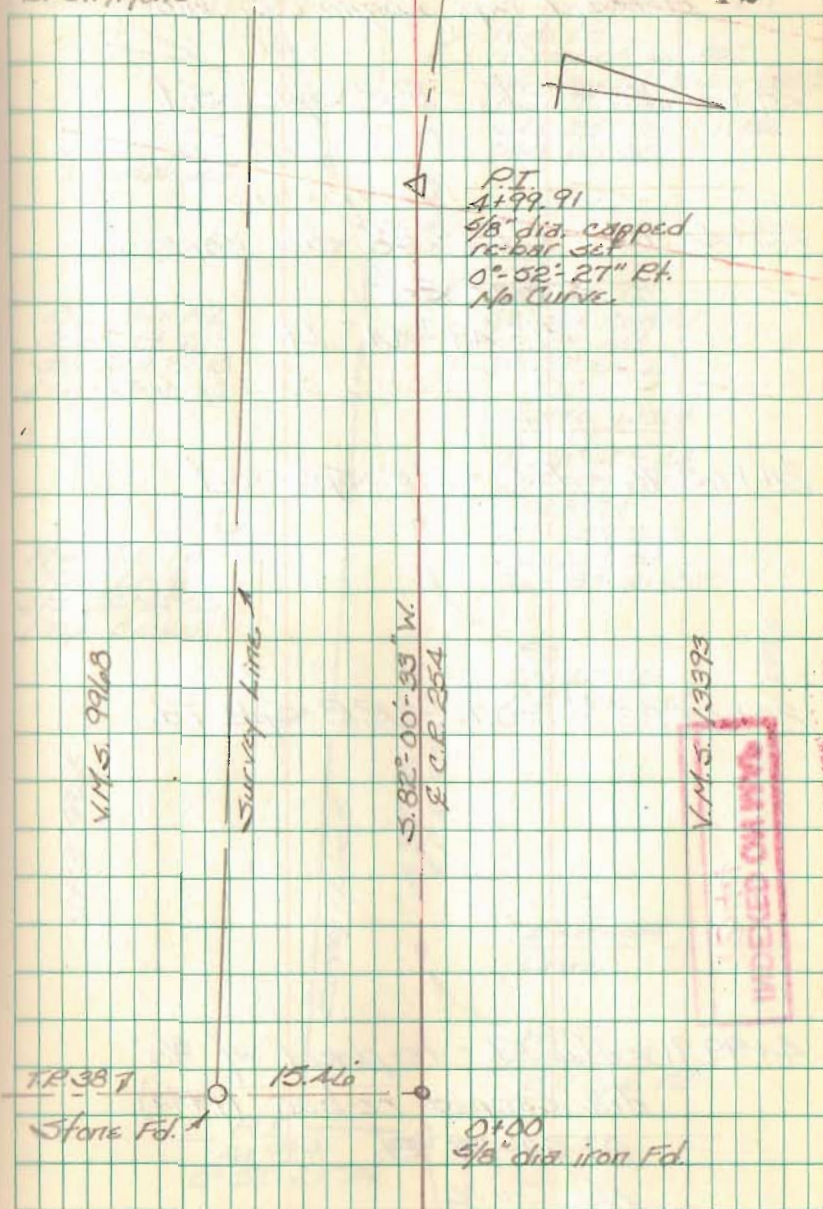 P.I.
4+99.91
5/8" dia. capped
re-bar set
0°-52'-27" Rt.
No Curve.
V.M.S. 9968
Survey Line
S.82°-00'-33" W.
℄ C.R. 254
V.M.S. 13393
INDEXED
T.R. 387
15.46
Stone Fd.
0+00
5/8" dia. iron Fd.